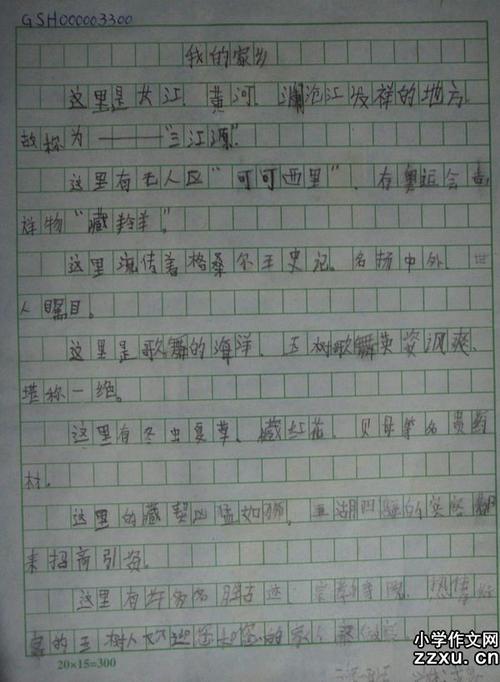 GSH000003300
我的家乡
这里是大江、黄河、澜沧江发祥的地方,
故称为——"三江源".
这里有无人区"可可西里"、有奥运会吉
祥物"藏羚羊"。
这里流传着格桑尔王史记。名扬中外、世
人瞩目。
这里是歌舞的海洋、玉树歌舞英姿飒爽、
堪称一绝。
这里有冬虫夏草、藏红花、贝母等名贵药
材.
这里的藏獒凶猛如狮,
来招商引资。
这里有许多名胜古迹 热情好
客的玉树人
20×15=300
小学作文网
zzxu.cn